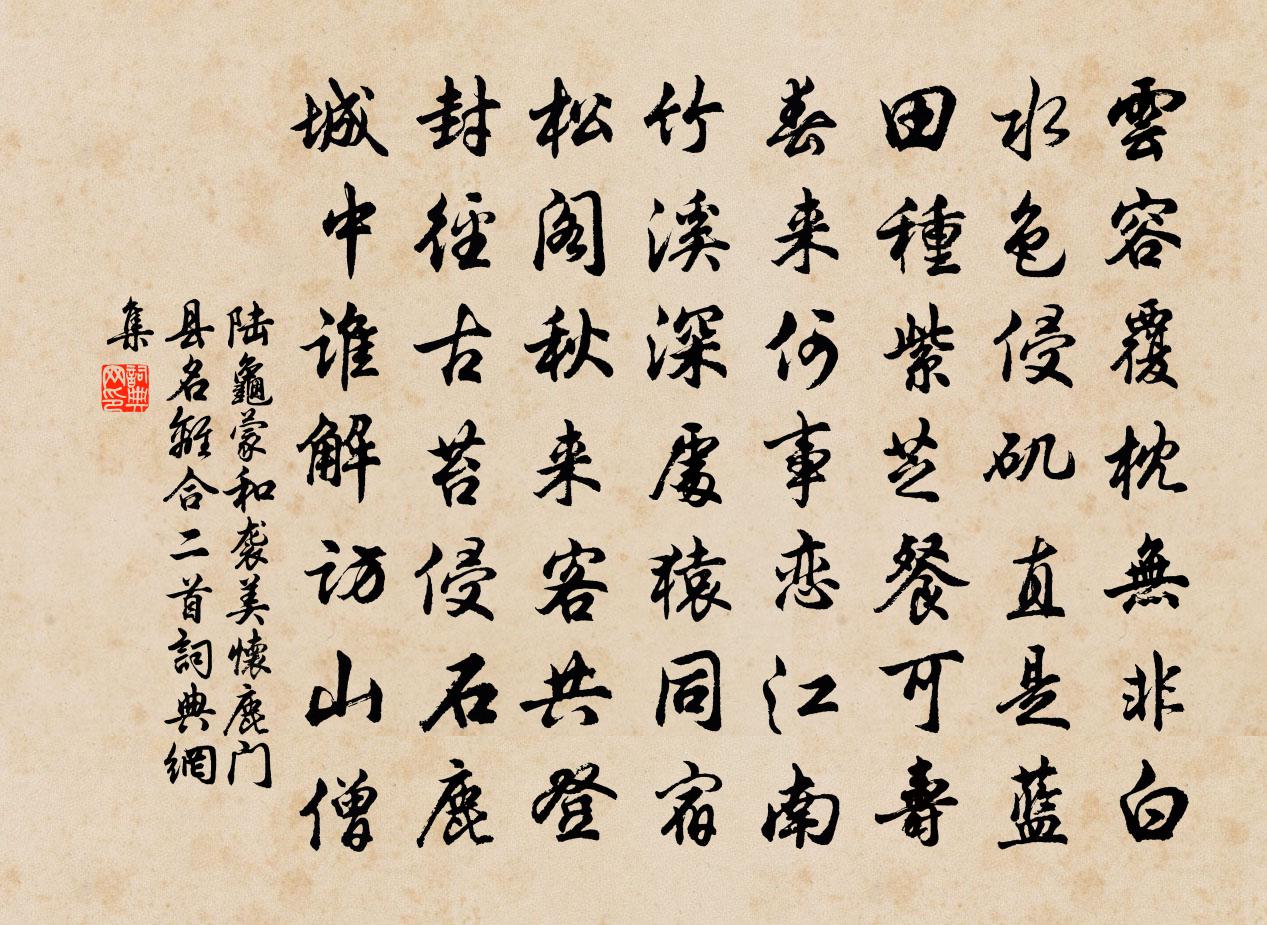 雲容覆枕無非白
水色侵矶直是藍
田種紫芝餐可壽
春来何事恋江南
竹溪深處猿同宿
松阁秋来客共登
封徑古苔侵石鹿
城中谁解访山僧
陆龜蒙和袭美懐鹿门
县名離合二首詞典網
集
詞典网印